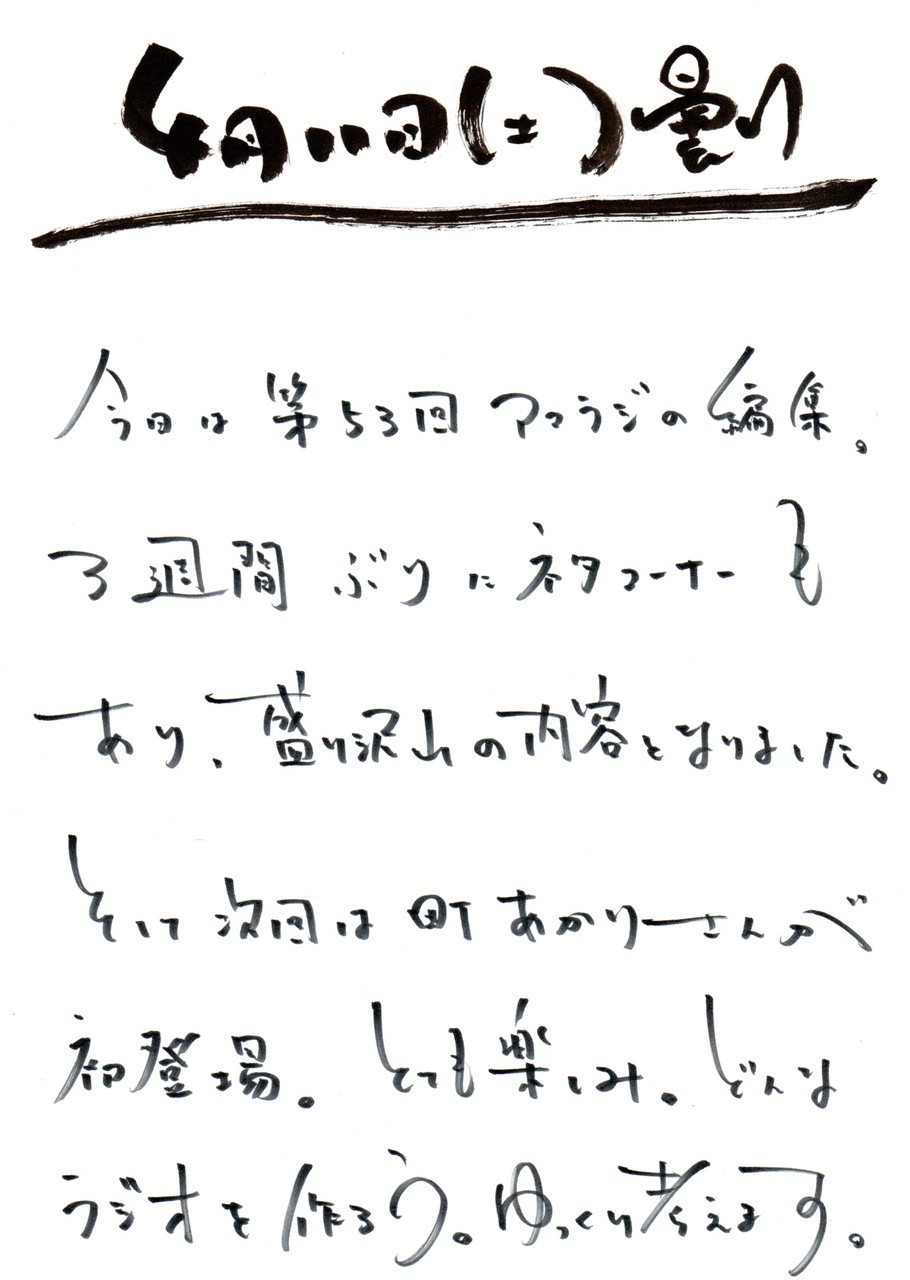 4月11日(土)曇り
今日は第53回アコラジの編集。
3週間ぶりにネタコーナーも
あり、盛り沢山の内容となりました。
そして次回は町あかりーさんが
初登場。とても楽しみ。どんな
ラジオを作ろう。ゆっくり考えます。